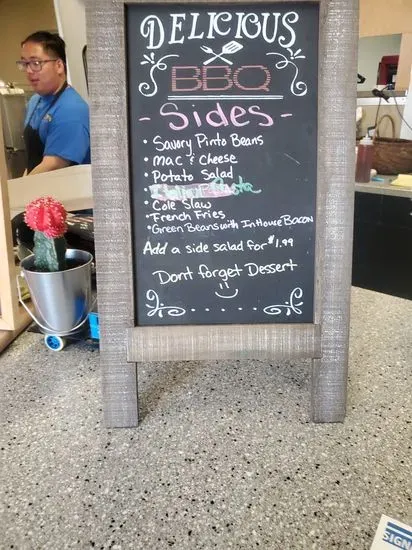 DELICIOUS
BBQ
- Sides -
• Savory Pinto Beans
• Mac & Cheese
• Potato Salad
• Italian Pasta
• Cole Slaw
• French Fries
• Green Beans with In House Bacon
Add a side salad for $1.99
Dont forget Dessert
SIGN